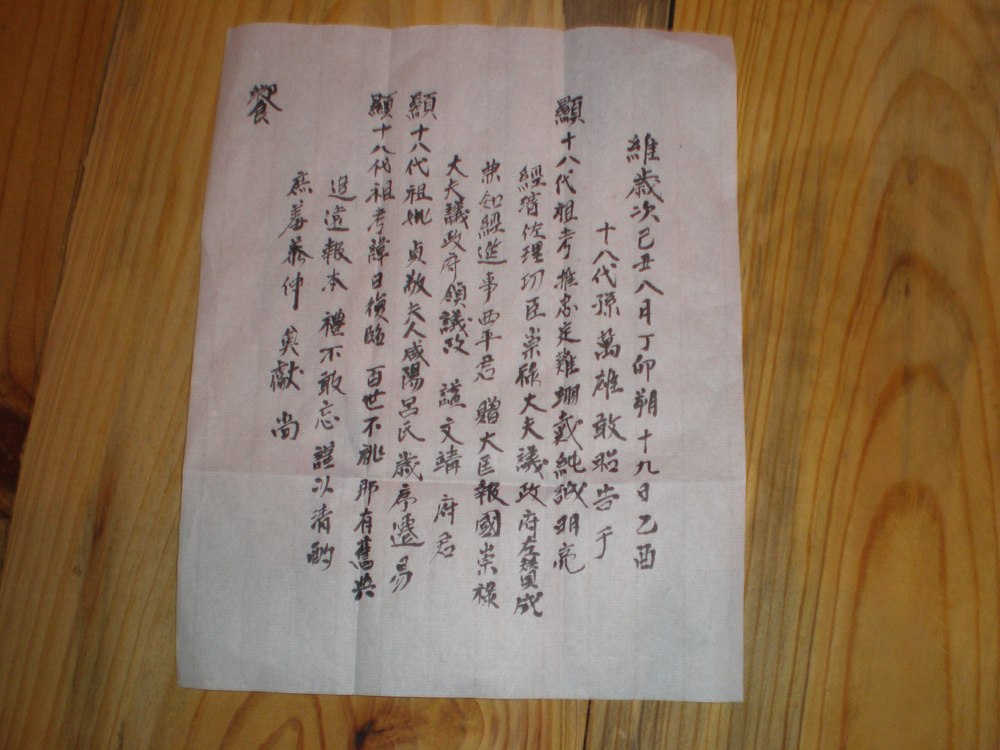 維歲次己丑八月丁卯朔十九日乙酉
十八代孫萬雄敢昭告于
顯十八代祖考推忠定難翊戴純誠明亮
經濟佐理功臣崇祿大夫議政府左贊成
兼知經筵事西平君 贈大匡報國崇祿
大夫議政府領議政 謚文靖 府君
顯十八代祖妣 貞敬夫人咸陽呂氏歲序遷易
顯十八代祖考諱日復臨 百世不祧邦有舊典
追遠報本 禮不敢忘 謹以清酌
庶羞恭伸 奠獻 尚
饗